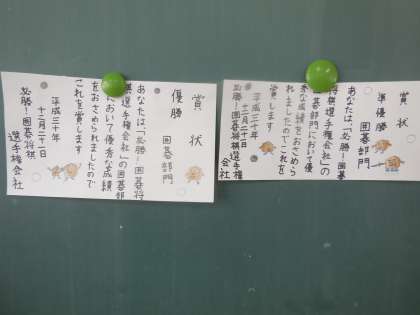 賞状
優勝
囲碁部門
あなたは「必勝!囲碁将
棋選手権会社」の囲碁部
において優秀な成績
をおさめられましたので
これを賞します
平成三十年
十二月二十一日
必勝!囲碁将棋
選手権会社
賞状
準優勝
囲碁部門
あなたは、「必勝!囲碁
将棋選手権会社」の
囲碁部門において優
秀な成績をおさめら
れましたのでこれを
賞します
平成三十年
十二月二十一日
必勝!囲碁将棋選手権
会社